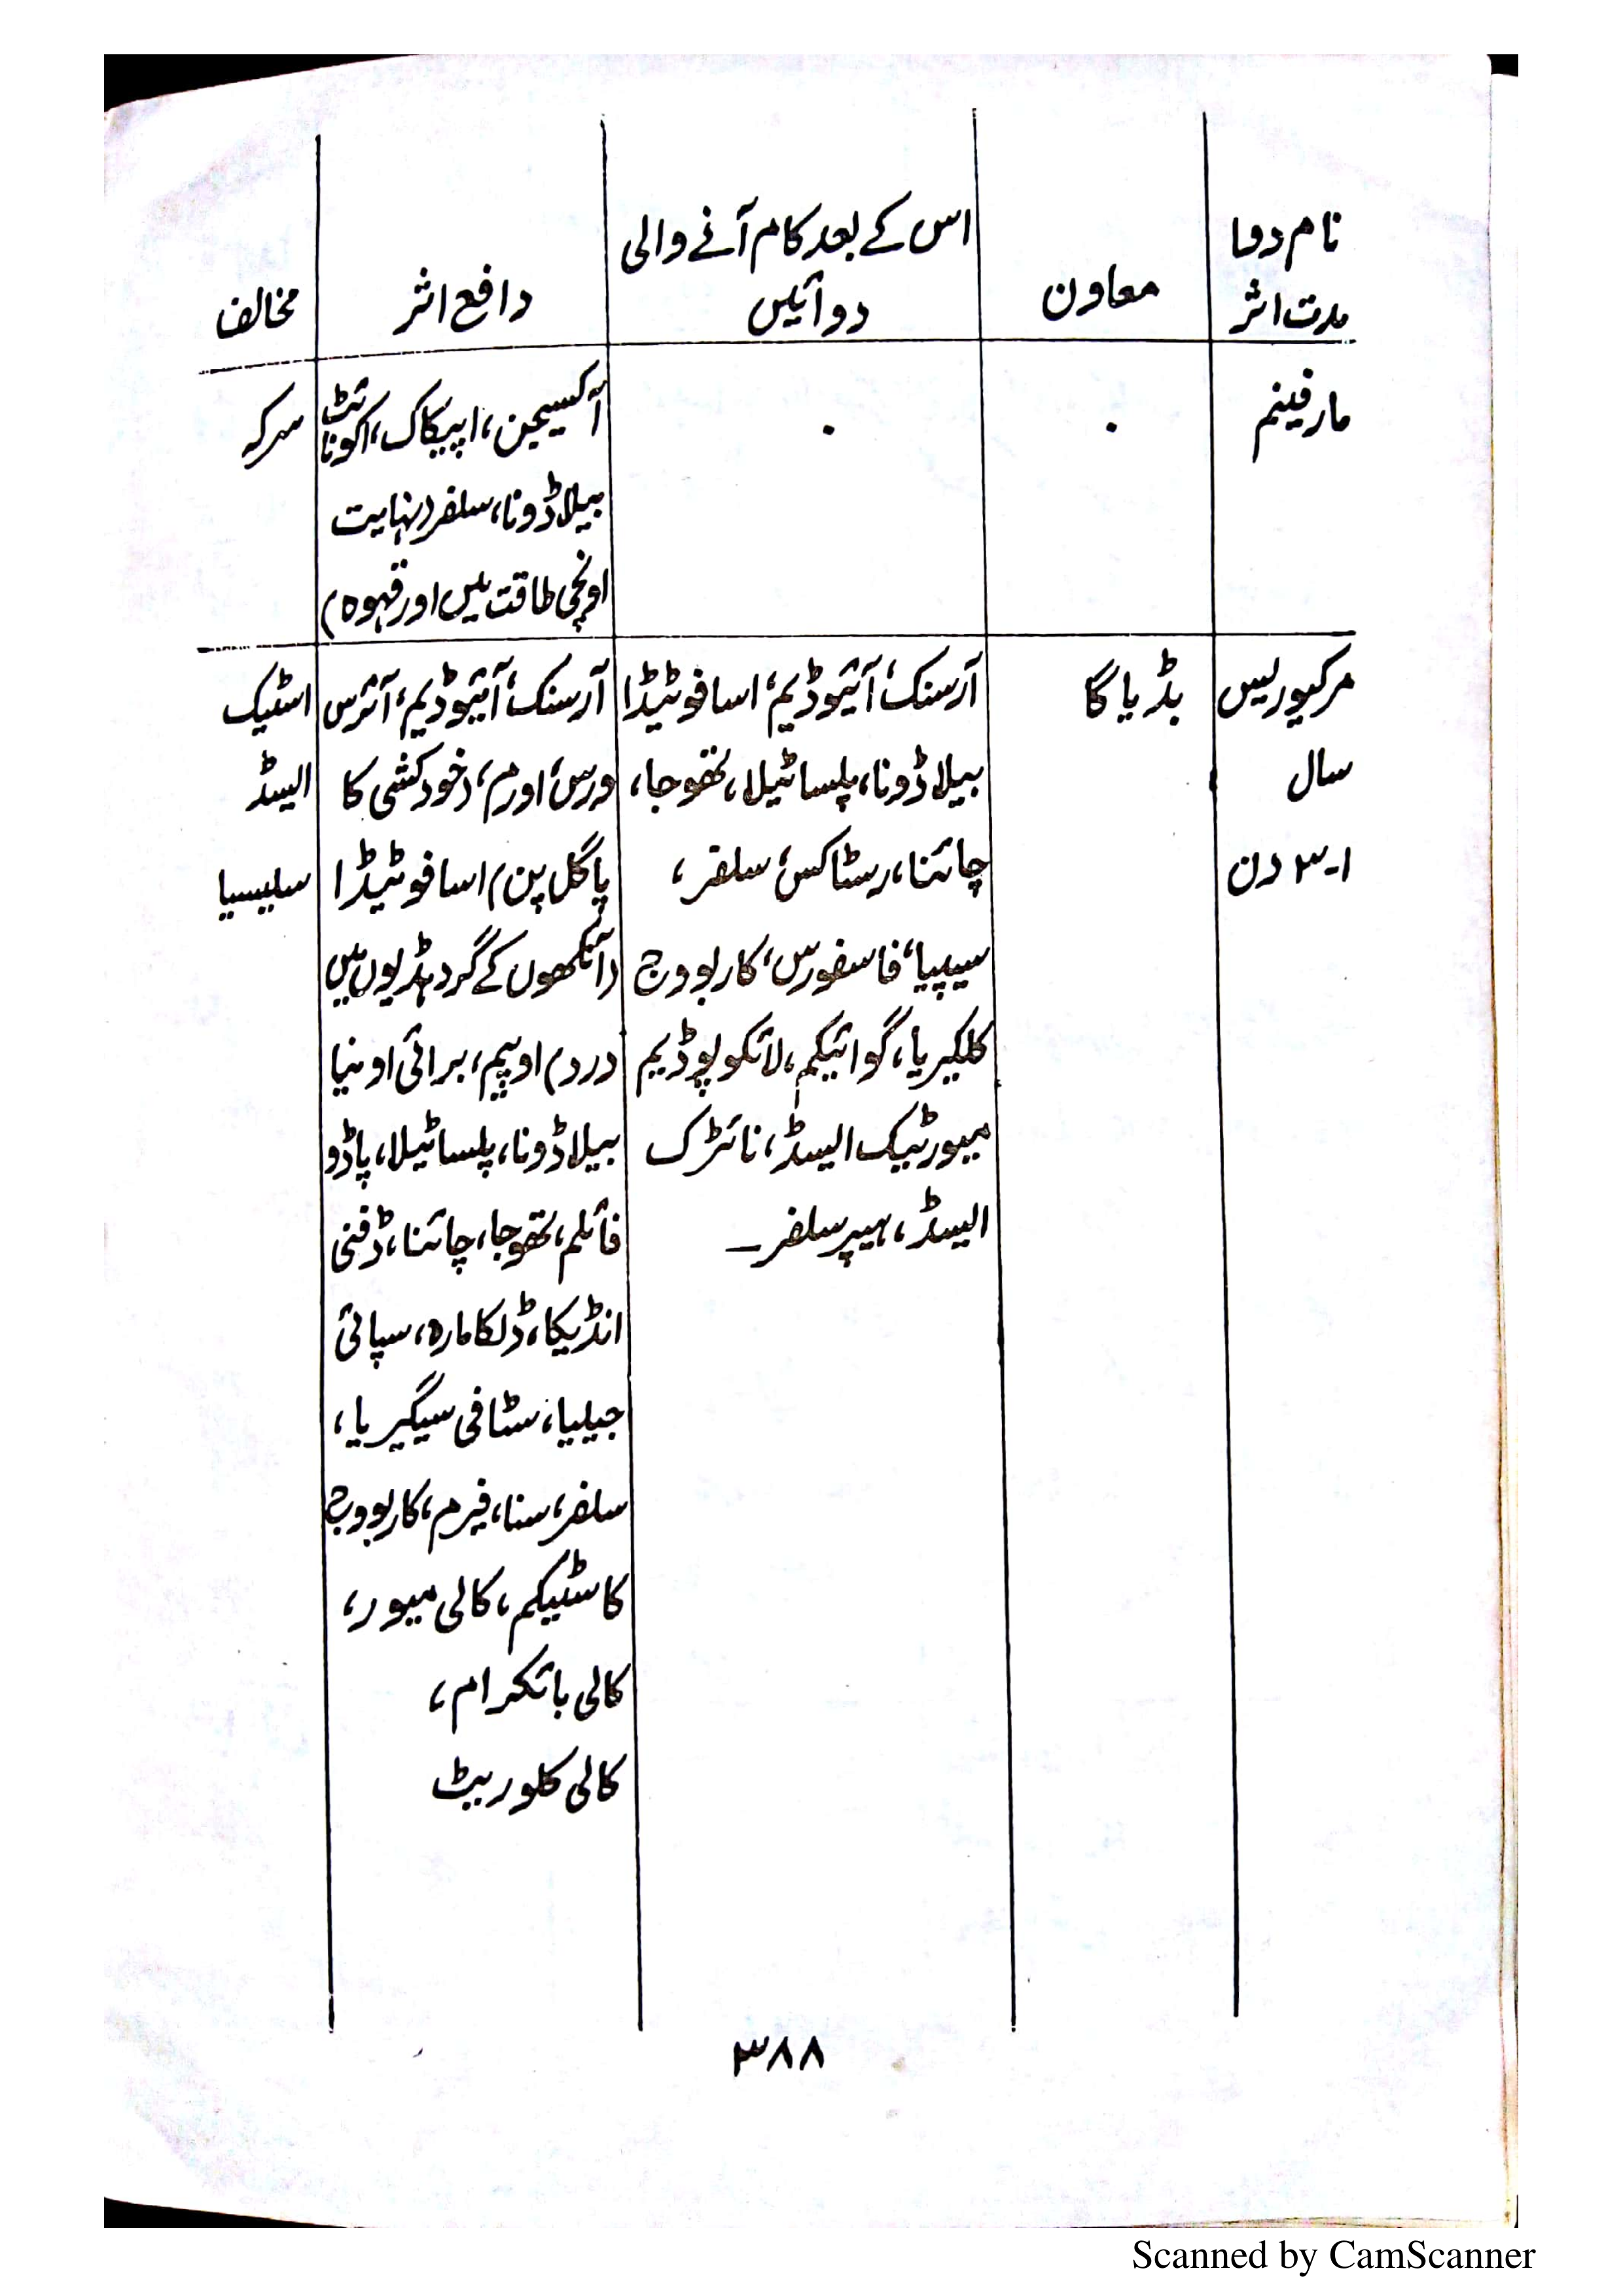 نام دوا
مدت اثر
معاون
اس کے بعد کام آنے والی
دوائیں
دافع اثر
مخالف
مارفینم
.
.
آکسیجن، اپیکاک، اکونائٹ
بیلاڈونا، سلفر (نہایت
اونچی طاقت میں اور قہوہ)
سرکہ
مرکیوریس
سال
۱-۳ دن
بڈیاگا
آرسنک، آئیوڈیم، اسافوٹیڈا
بیلاڈونا، پلساٹیلا، تھوجا،
چائنا، رسٹاکس، سلفر،
سیپیا، فاسفورس، کاربووج
کلکیریا، گوائیکم، لائکوپوڈیم
میورٹیک ایسڈ، نائٹرک
ایسڈ، ہیپر سلفر۔
آرسنک، آئیوڈیم، آئرس
ورس، اورم، (خودکشی کا
پاگل پن) اسافوٹیڈا
(آنکھوں کے گرد ہڈیوں میں
درد) اوپیم، برائی اونیا
بیلاڈونا، پلساٹیلا، پاڈو
فائلم، تھوجا، چائنا، ڈفنی
انڈیکا، ڈلکامارہ، سپائی
جیلیا، سٹافی سیگیریا،
سلفر، سنا، فیرم، کاربووج
کاسٹیکم، کالی میور،
کالی بائکرام،
کالی کلوریٹ
اسٹیک
ایسڈ
سلیسیا
۳۸۸
Scanned by CamScanner